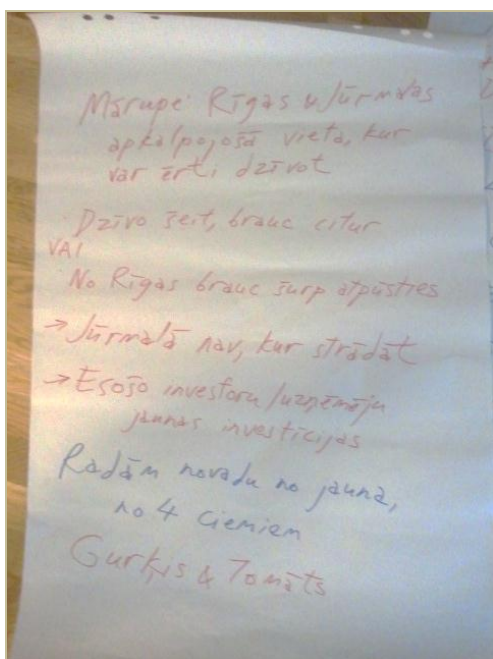 Mārupe Rīgas u Jūrmalas
apkalpojošā vieta, kur
var ērti dzīvot
Dzīvo šeit, brauc citur
VAI
No Rīgas brauc šurp atpūsties
→ Jūrmalā nav, kur strādāt
→ Esošo investoru/uzņēmēju
jaunas investīcijas
Radām novadu no jauna,
no 4 ciemiem
Gurķis & Tomāts